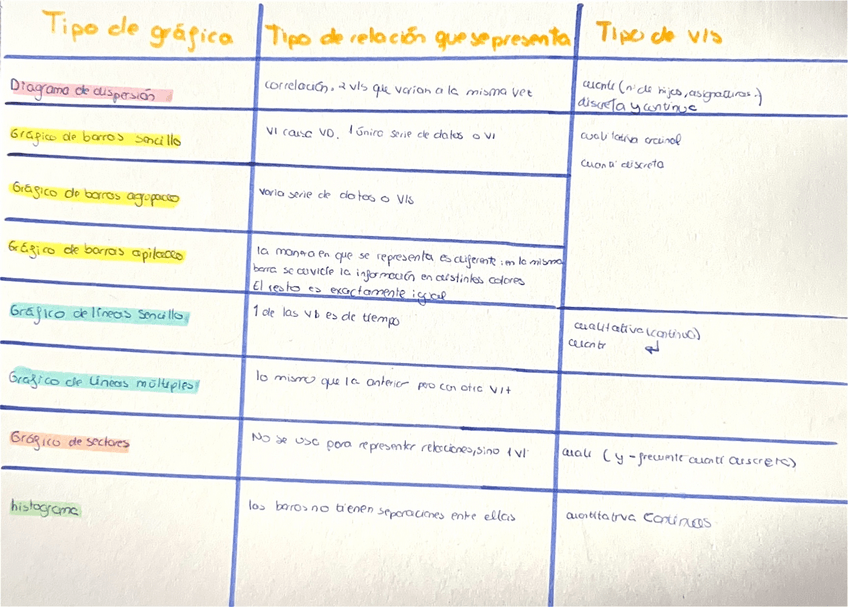 Tipo de gráfica
Tipo de relación que se presenta
Tipo de v/s
Diagrama de dispersión
correlación. 2 v/s que varian a la misma vez
cuanti (nº de hijos, asignaturas.)
discreta y continua
Gráfico de barras sencillo
VI causa VD. 1 único serie de datos o VI
cualitativa ordinal
cuanti discreta
Gráfico de barras agrupado
varia serie de datos o V/S
Gráfico de barras apilado
la manera en que se representa es diferente: en la misma
barra se divide la información en distintos colores
El resto es exactamente igual
Gráfico de líneas sencillo
1 de las vb es de tiempo
cualitativa (continua)
cuanti ↵
Gráfico de líneas múltiples
lo mismo que la anterior pero con otra
Gráfico de sectores
No se usa para representar relaciones, sino 1 VI
cuali (y - frecuente cuanti discreta)
histograma
las baras no tienen separaciones entre ellas
cuantitativa continuas